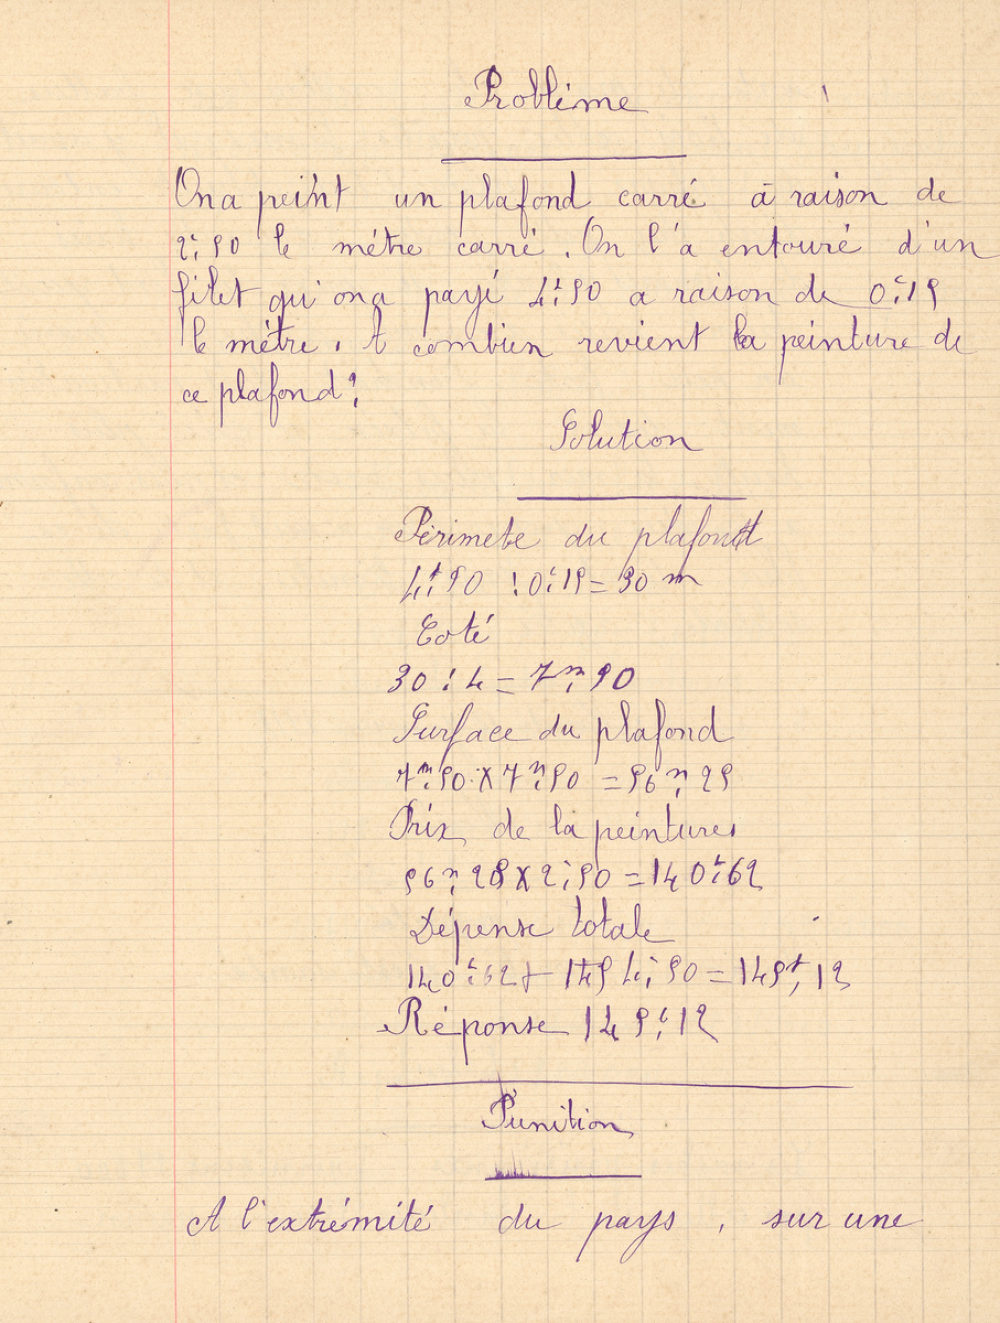 Probléme
On a peint un plafond carré à raison de
2f,50 le métre carré. On l'a entouré d'un
filet qu'on a payé 4f,50 a raison de 0f,15
le métre. A combien revient la peinture de
ce plafond?
Solution
Périmete du plafond
4f,50 : 0f,15 = 30 m
Coté
30 : 4 = 7m,50
Surface du plafond
7m,50 x 7m,50 = 56m,25
Prix de la peintures
56m,25 x 2f,50 = 140f,62
Dépense totale
140f,62 + 4f,50 = 145f,12
Réponse 145f,12
Punition
A l'extrémité du pays, sur une